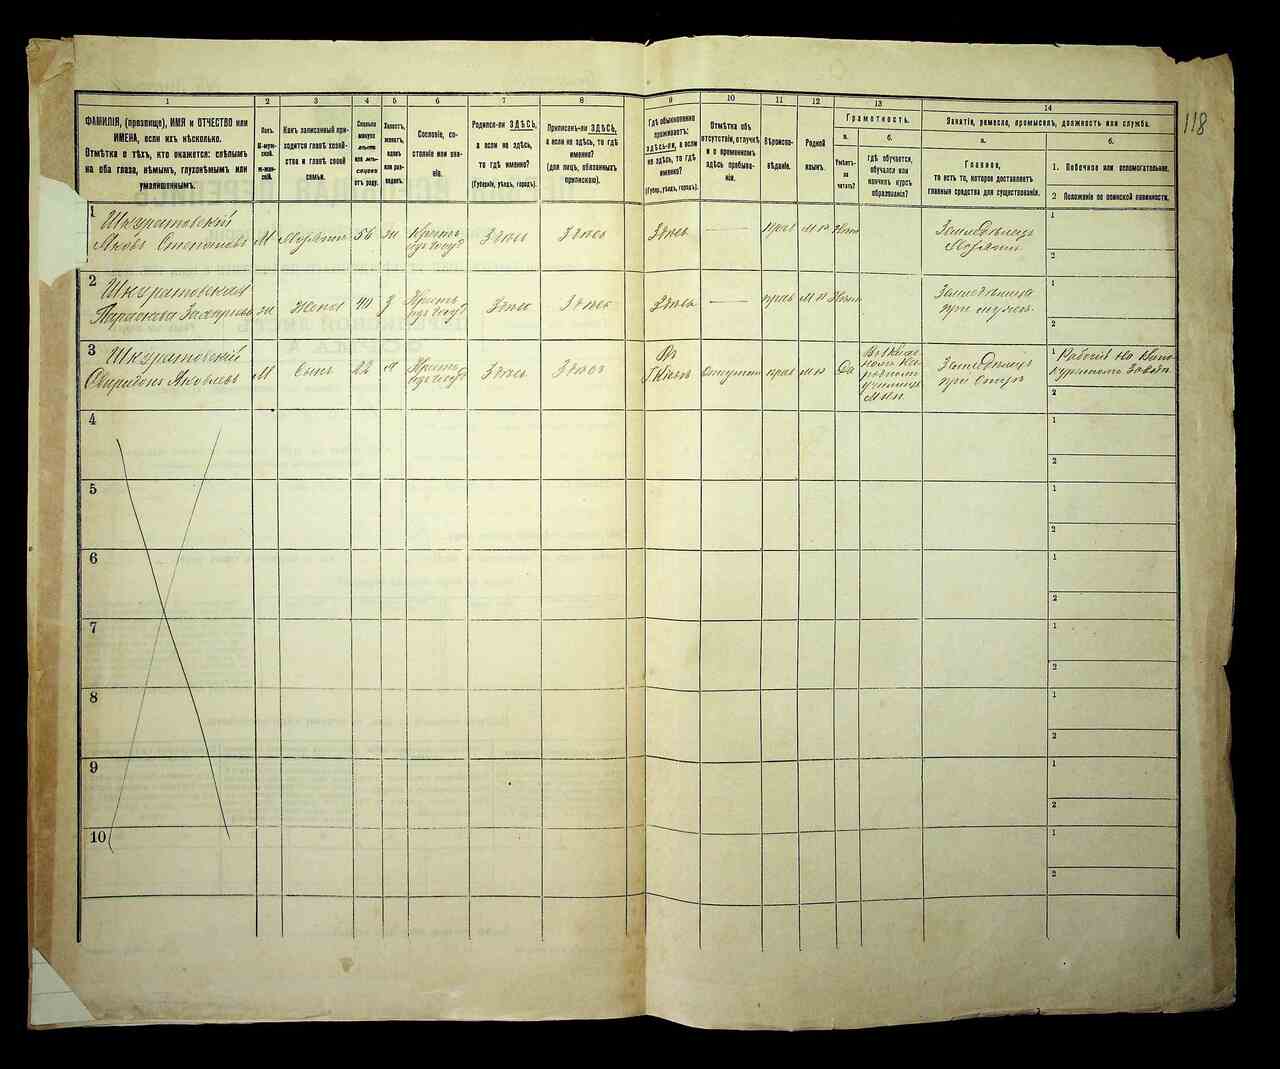 118
1
2
3
4
5
6
7
8
9
10
11
12
13
14
ФАМИЛІЯ, (прозвище), ИМЯ и ОТЧЕСТВО или
ИМЕНА, если ихъ нѣсколько.
Отмѣтка о тѣхъ, кто окажется: слѣпымъ
на оба глаза, нѣмымъ, глухонѣмымъ или
умалишеннымъ.
Полъ.
М-муж-
ской.
Ж-жен-
скій.
Какъ записанный при-
ходится главѣ хозяй-
ства и главѣ своей
семьи.
Сколько
минуло
лѣтъ
или мѣ-
сяцевъ
отъ роду.
Холостъ,
женатъ,
вдовъ
или раз-
веденъ.
Сословіе, со-
стояніе или зва-
ніе.
Родился-ли ЗДѢСЬ,
а если не здѣсь,
то гдѣ именно?
(Губернія, уѣздъ, городъ).
Приписанъ-ли ЗДѢСЬ,
а если не здѣсь, то гдѣ
именно?
(для лицъ, обязанных
припискою).
Гдѣ обыкновенно
проживаетъ:
здѣсь-ли, а если
не здѣсь, то гдѣ
именно?
(Губерн., уѣздъ, городъ).
Отмѣтка объ
отсутствіи, отлучкѣ
и о временномъ
здѣсь пребыва-
ніи.
Вѣроиспо-
вѣданіе.
Родной
языкъ.
Грамотность.
а.
б.
Умѣетъ-
ли
читать?
гдѣ обучается,
обучался или
кончилъ курсъ
образованія?
Занятіе, ремесло, промыселъ, должность или служба.
а.
б.
Главное,
то есть то, которое доставляетъ
главныя средства для существованія.
1. Побочное или вспомогательное.
2 Положеніе по воинской повинности.
1
Шкуратовскій
Яковъ Степановъ
М
Хозяинъ
56
ж
Крест.
Здѣсь
Здѣсь
Здѣсь
прав
Нѣтъ
Земледѣлецъ
Хозяинъ
1
2
2
Шкуратовская
Параскева
ж
Жена
40
з
Крест.
Здѣсь
Здѣсь
Здѣсь
прав
Нѣтъ
Земледѣлица
при мужѣ
1
2
3
Шкуратовскій
Яковлевъ
М
Сынъ
22
х
Крест.
Здѣсь
Здѣсь
Въ
г. Кіевѣ
прав
Да
училищѣ
Земледѣлецъ
при Отцѣ
1 Рабочій на
2
4
1
2
5
1
2
6
1
2
7
1
2
8
1
2
9
1
2
10
1
2